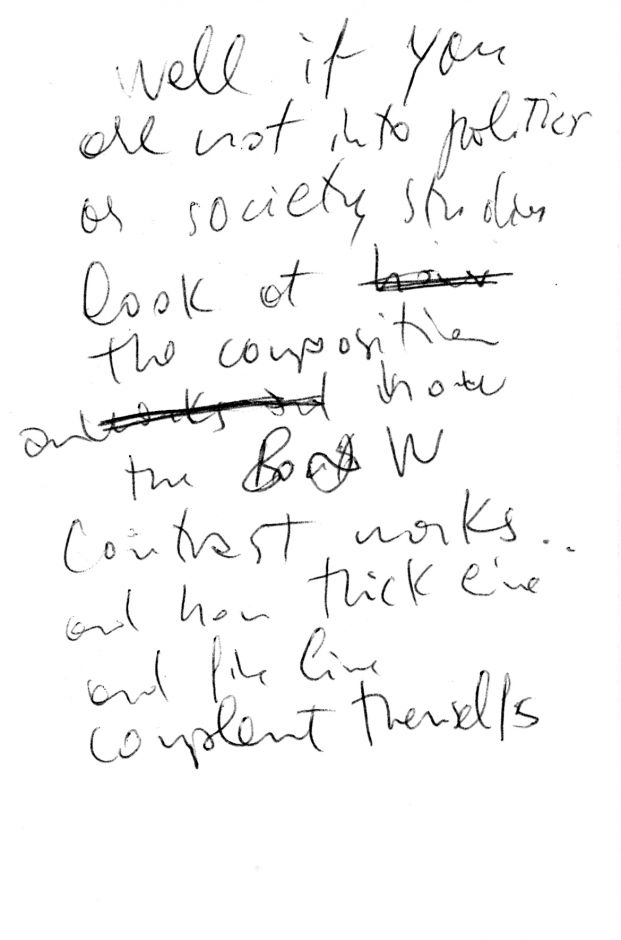 well if you
are not into politics
or society studies
look at
the composition
and how
the B W
Contrast works..
and how thick line
and fine line
complent themselfs